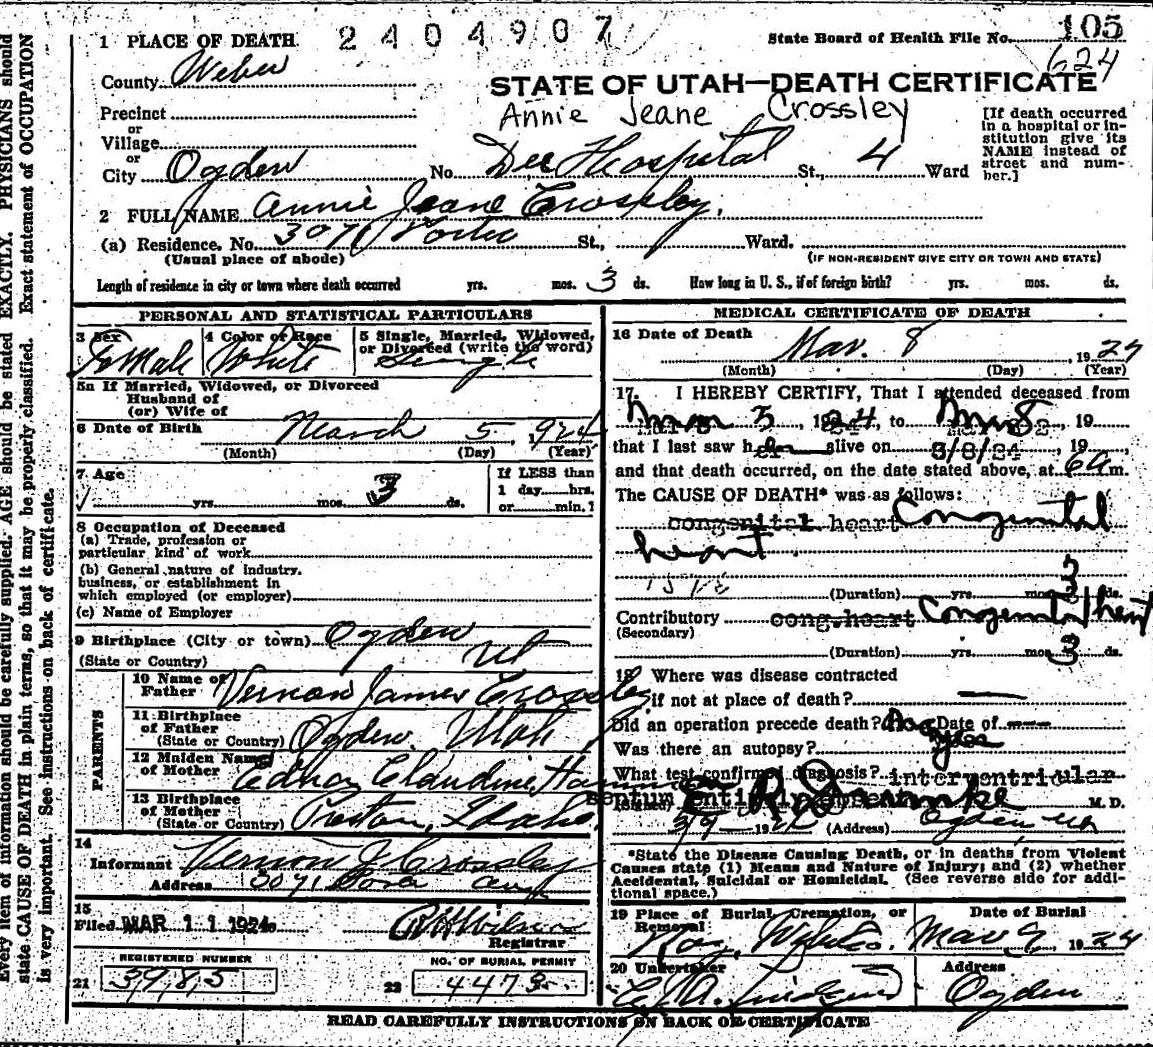 2404907
State Board of Health File No. 105
624
1 PLACE OF DEATH
County Weber
STATE OF UTAH—DEATH CERTIFICATE
Annie Jeane Crossley
Precinct
or
Village
or
City Ogden No. Dee Hospital St., 4 Ward
[If death occurred in a hospital or institution give its NAME instead of street and number.]
2 FULL NAME Annie Jeane Crossley.
(a) Residence. No. 3071 St., Ward.
(Usual place of abode) (IF NON-RESIDENT GIVE CITY OR TOWN AND STATE)
Length of residence in city or town where death occurred yrs. mos. 3 ds. How long in U. S., if of foreign birth? yrs. mos. ds.
PERSONAL AND STATISTICAL PARTICULARS
3 Sex Female 4 Color or Race White 5 Single, Married, Widowed, or Divorced (write the word) Single
5a If Married, Widowed, or Divorced
Husband of
(or) Wife of
6 Date of Birth March 5, 1924
(Month) (Day) (Year)
7 Age yrs. mos. 3 ds. If LESS than
1 day hrs.
or min.?
8 Occupation of Deceased
(a) Trade, profession or
particular kind of work
(b) General nature of Industry,
business, or establishment in
which employed (or employer)
(c) Name of Employer
9 Birthplace (City or town) Ogden
(State or Country) Ut
PARENTS
10 Name of Father Vernon James Crossley
11 Birthplace of Father
(State or Country) Ogden. Utah
12 Maiden Name of Mother Claudine
13 Birthplace of Mother
(State or Country) Preston, Idaho.
14
Informant Vernon J Crossley
Address 3071
15
Filed MAR 11 1924
Registrar
REGISTERED NUMBER
21 3985
NO. OF BURIAL PERMIT
22 4473
MEDICAL CERTIFICATE OF DEATH
16 Date of Death Mar. 8 1924
(Month) (Day) (Year)
17. I HEREBY CERTIFY, That I attended deceased from
Mar 5, 1924, to Mar 8, 19
that I last saw her alive on 3/8/24, 19
and that death occurred, on the date stated above, at 6 a m.
The CAUSE OF DEATH* was as follows:
congenital heart Congenital
heart
(Duration) yrs. mos. 3 ds.
Contributory cong.heart Congenital heart
(Secondary)
(Duration) yrs. mos. 3 ds.
18 Where was disease contracted
if not at place of death?
Did an operation precede death? No Date of
Was there an autopsy? yes
What test confirmed diagnosis? interventricular
septum entirely absent
M. D.
3/9 19 (Address) Ogden Ut
*State the Disease Causing Death, or in deaths from Violent
Causes state (1) Means and Nature of Injury; and (2) whether
Accidental, Suicidal or Homicidal. (See reverse side for additional space.)
19 Place of Burial, Cremation, or Removal Date of Burial
Roy, Weber Co. Mar 9, 1924
20 Undertaker Address
Ogden
READ CAREFULLY INSTRUCTIONS ON BACK OF CERTIFICATE
Every item of information should be carefully supplied. AGE should be stated EXACTLY. PHYSICIANS should
state CAUSE OF DEATH in plain terms, so that it may be properly classified. Exact statement of OCCUPATION
is very important. See instructions on back of certificate.